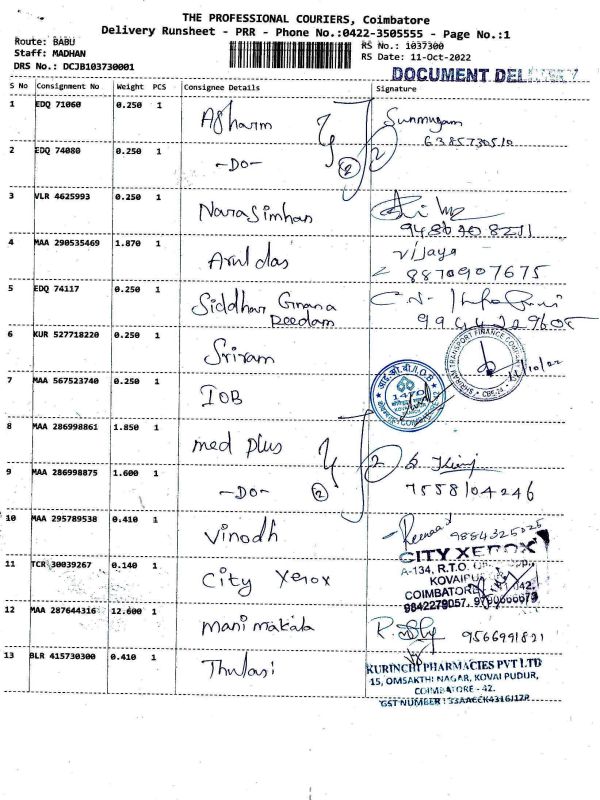 THE PROFESSIONAL COURIERS, Coimbatore
Delivery Runsheet - PRR - Phone No.:0422-3505555 - Page No.:1
Route: BABU
Staff: MADHAN
DRS No.: DCJB103730001
RS No.: 1037300
RS Date: 11-Oct-2022
DOCUMENT DELIVERY
S No Consignment No Weight PCS Consignee Details Signature
1 EDQ 71060 0.250 1 Sunmugam
6385730510
2 EDQ 74080 0.250 1 -DO- 2 2
3 VLR 4625993 0.250 1 Narasimhan
9486708211
4 MAA 290535469 1.870 1 Aruldas Vijaya
8870907675
5 EDQ 74117 0.250 1 Siddhar Gnana
Peedam
6 KUR 527718220 0.250 1 Sriram
SHRIRAM TRANSPORT FINANCE
7 MAA 567523740 0.250 1 IOB
1470
8 MAA 286998861 1.850 1 med plus 2
9 MAA 286998875 1.600 1 -DO- 2 7558104246
10 MAA 295789538 0.410 1 Vinodh 9884325025
CITY XEROX
A-134, R.T.O.
11 TCR 30039267 0.140 1 City Xerox KOVAIPUDUR
COIMBATORE 642.
9842279057, 9790666673
12 MAA 287644316 12.600 1 Manimakala 9566991821
13 BLR 415730300 0.410 1 Thulasi
KURINCHI PHARMACIES PVT LTD
15, OMSAKTHI NAGAR, KOVAI PUDUR,
COIMBATORE - 42.
GST NUMBER : 33AAECK4316J1ZP